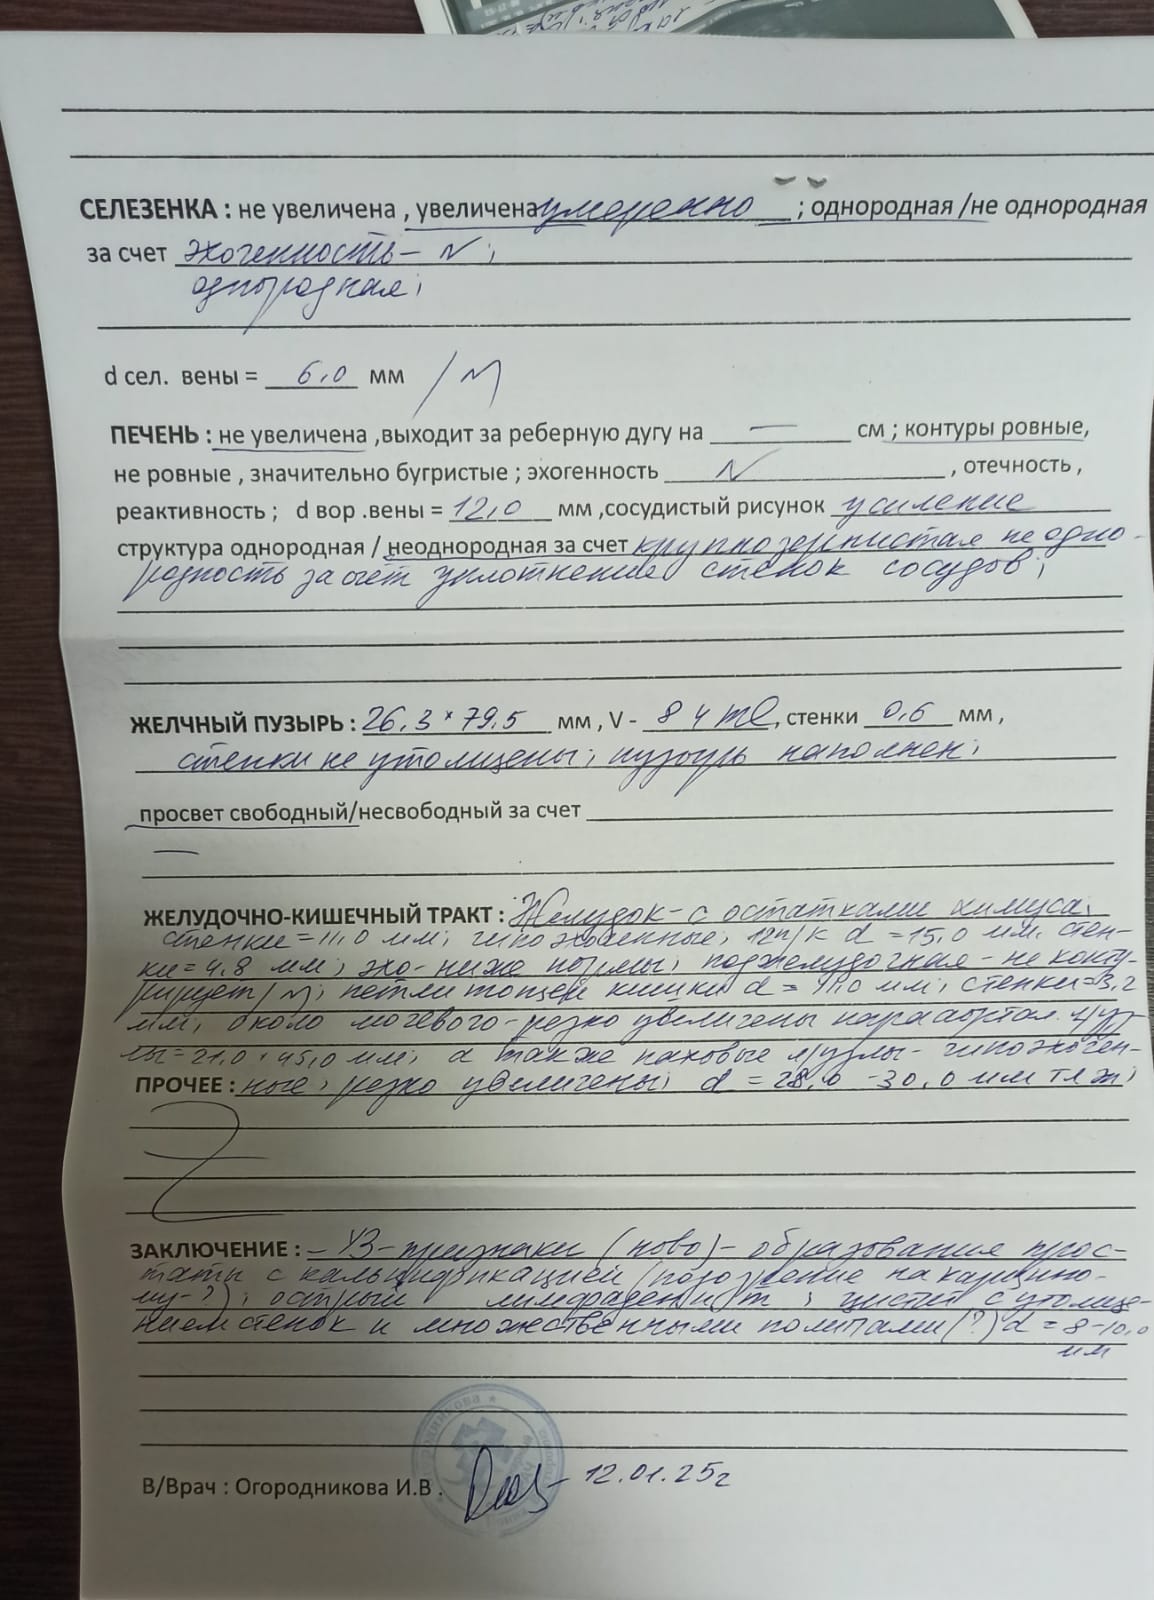 СЕЛЕЗЕНКА : не увеличена , увеличена умеренно ; однородная /не однородная
за счет эхогенность – N ;
однородная ;
d сел. вены = 6,0 мм /N
ПЕЧЕНЬ : не увеличена ,выходит за реберную дугу на — см ; контуры ровные,
не ровные , значительно бугристые ; эхогенность N , отечность ,
реактивность ; d вор .вены = 12,0 мм ,сосудистый рисунок усиление
структура однородная / неоднородная за счет крупнозернистая неодно-
родность за счёт уплотнение стенок сосудов ;
ЖЕЛЧНЫЙ ПУЗЫРЬ : 26,3 × 79,5 мм , V - 8 4 ml , стенки 0,6 мм ,
стенки не утолщены ; пузырь наполнен ;
просвет свободный/несвободный за счет
—
ЖЕЛУДОЧНО-КИШЕЧНЫЙ ТРАКТ : Желудок – с остатками химуса ;
стенки = 11,0 мм, гипоэхогенные, 12п/к d = 15,0 мм, стен-
ки = 4,8 мм ; эхо- ниже нормы ; поджелудочная – не конту-
рирует /N ; петли тощей кишки d = 11,0 мм , стенки = 3,2
мм ; около мочевого – резко увеличены парааортал. л/уз-
лы = 21,0 × 45,0 мм ; а также паховые л/узлы – гипоэхоген-
ПРОЧЕЕ : ные, резко увеличены ; d = 28,0 – 30,0 мм
ЗАКЛЮЧЕНИЕ : – УЗ-признаки (ново)- образования прос-
таты с кальцификацией (подозрение на карцино-
му - ?) ; острый лимфаденит ; цистит с утолще-
нием стенок и множественными полипами (?) d = 8 – 10,0
мм
В/Врач : Огородникова И.В . 12.01.25г